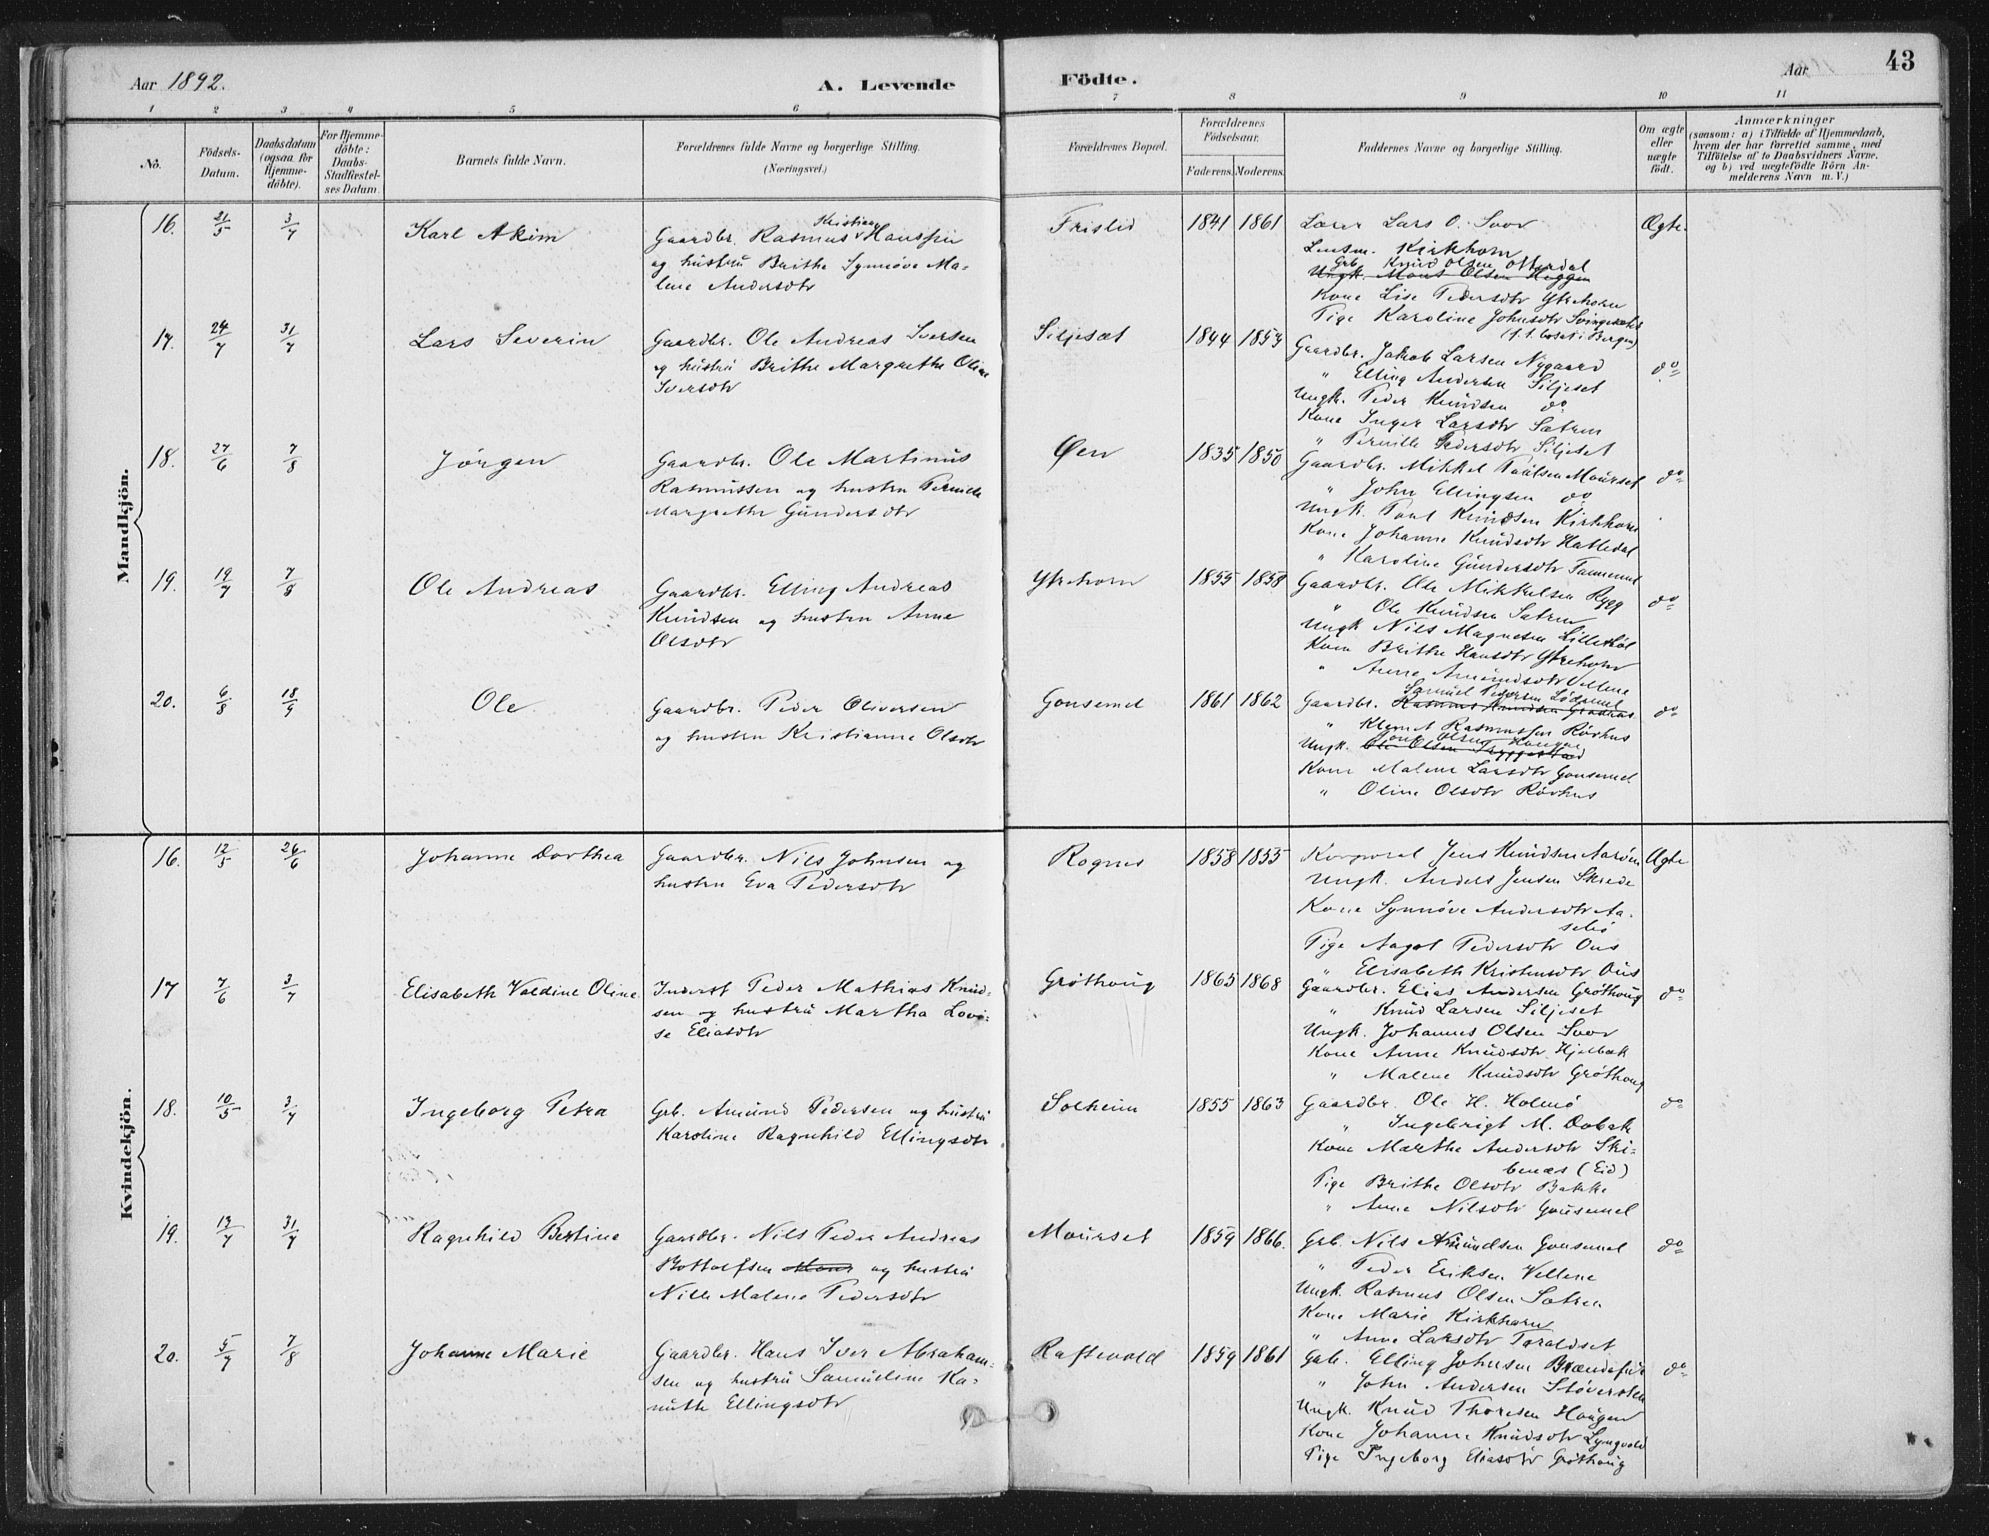 Aar 1892. A. Levende Födte. Aar 43
1 2 3 4 5 6 7 8 9 10 11
No. Födsels-Datum. Daabsdatum (ogsaa for Hjemmedöbte). For Hjemmedöbte: Daabs-Stadfæstelses Datum. Barnets fulde Navn. Forældrenes fulde Navne og borgerlige Stilling. (Næringsvei.) Forældrenes Bopæl. Forældrenes Födselsaar. Faderens. Moderens. Faddernes Navne og borgerlige Stilling. Om ægte eller uægte födt. Anmærkninger (saasom: a) i Tilfælde af Hjemmedaab, hvem der har forrettet samme, med Tilföielse af to Daabsvidners Navne, og b) ved uægtefödte Börn Anmelderens Navn m. V.)
Mandkjön.
16. 21/5 3/7 Karl Akim
Gaardbr. Rasmus Kristian Hanssen
og hustru Brithe Synnøve Ma-
lene Andersdtr
Frislid 1841 1861
Lærer Lars O. Svor
Lensm. Kirkhorn
Grb. Knud Olsen Otterdal
Ungk. Mons Olsen Huggen
Kone Lise Pedersdtr Ytrehorn
Pige Karoline Johnsdtr Svingesæter
(f. t. bosat i Bergen)
Ægte.
17. 24/7 31/7 Lars Severin
Gaardbr. Ole Andreas Iversen
og hustru Brithe Margrethe Oline
Iversdtr
Siljesæt 1844 1853
Gaardbr. Jakob Larsen Nygaard
" Elling Andersen Siljeset
Ungk. Peder Knudsen do
Kone Inger Larsdtr Sætren
" Pernille Pedersdtr Siljeset
do
18. 27/6 7/8 Jörgen
Gaardbr. Ole Martinus
Rasmussen og hustru Pernille
Margrethe Gundersdtr
Øen 1835 1850
Gaardbr. Mikkel Paulsen Mourset
" John Ellingsen do
Ungk. Paul Knudsen Kirkhorn
Kone Johanne Knudsdtr Hatledal
" Karoline Gundersdtr
do
19. 19/7 7/8 Ole Andreas
Gaardbr. Elling Andreas
Knudsen og hustru Anne
Olsdtr
Ytrehorn 1855 1858
Gaardbr. Ole Mikkelsen Rygg
" Ole Knudsen Sætren
Ungk Nils Magnesen
Kone Brithe Hansdtr Ytrehorn
" Anne Amundsdtr Vellene
do
20. 6/8 18/9 Ole
Gaardbr. Peder Oliversen
og hustru Kristianne Olsdtr
Gonsemel 1861 1862
Samuel Pedersen Lødemel
Gaardbr. Rasmus Knudsen
" Klemet Rasmussen Rörhus
Ungk. Ole Olsen Tryggestad
Kone Malene Larsdtr Gonsemel
" Oline Olsdtr Rörhus
do
Kvindekjön.
16. 12/5 26/6 Johanne Dorthea
Gaardbr. Nils Johnsen og
hustru Eva Pedersdtr
Rognes 1858 1855
Korporal Jens Knudsen Aaröen
Ungk. Anders Jensen Skrede
Kone Synnöve Andersdtr Aa-
sebö
Pige Aagot Pedersdtr Ous
" Elisabeth Kristensdtr Ous
Ægte
17 7/6 3/7 Elisabeth Valdine Oline
Inderst Peder Mathias Knud-
sen og hustru Martha Lovi-
se Eliasdtr
Gröthoug 1865 1868
Gaardbr. Elias Andersen Gröthoug
" Knud Larsen Siljeset
Ungk. Johannes Olsen Svor
Kone Anne Knudsdtr Hjelbak
" Malene Knudsdtr Gröthoug
do
18. 10/5 3/7 Ingeborg Petra
Grb. Amund Pedersen og hustru
Karoline Ragnhild Ellingsdtr
Solheim 1855 1863
Gaardbr. Ole H. Holmö
" Ingebrigt M. Dobak
Kone Marthe Andersdtr Ski-
benæs (Eid)
Pige Brithe Olsdtr Bakke
" Anne Nilsdtr Gousemel
do
19. 13/7 31/7 Ragnhild Bertine
Gaardbr. Nils Peder Andreas
Bottolfsen og hustru
Nille Malene Pedersdtr
Mourset 1859 1866.
Grb. Nils Amundsen Gonsemel
" Peder Eriksen Vellene
Ungk. Rasmus Olsen Sætren
Kone Marie Kirkhorn
" Anne Larsdtr Taraldset
do
20. 5/7 7/8 Johanne Marie
Gaardbr. Hans Iver Abraham-
sen og hustru Samueline Ka-
nuthe Ellingsdtr
Raftevold 1859 1861
Grb. Elling Johnsen
" John Andersen Stöversten
Ungk. Knud Thoresen Haugen
Kone Johanne Knudsdtr Lyngvold
Pige Ingeborg Eliasdtr Gröthoug
do